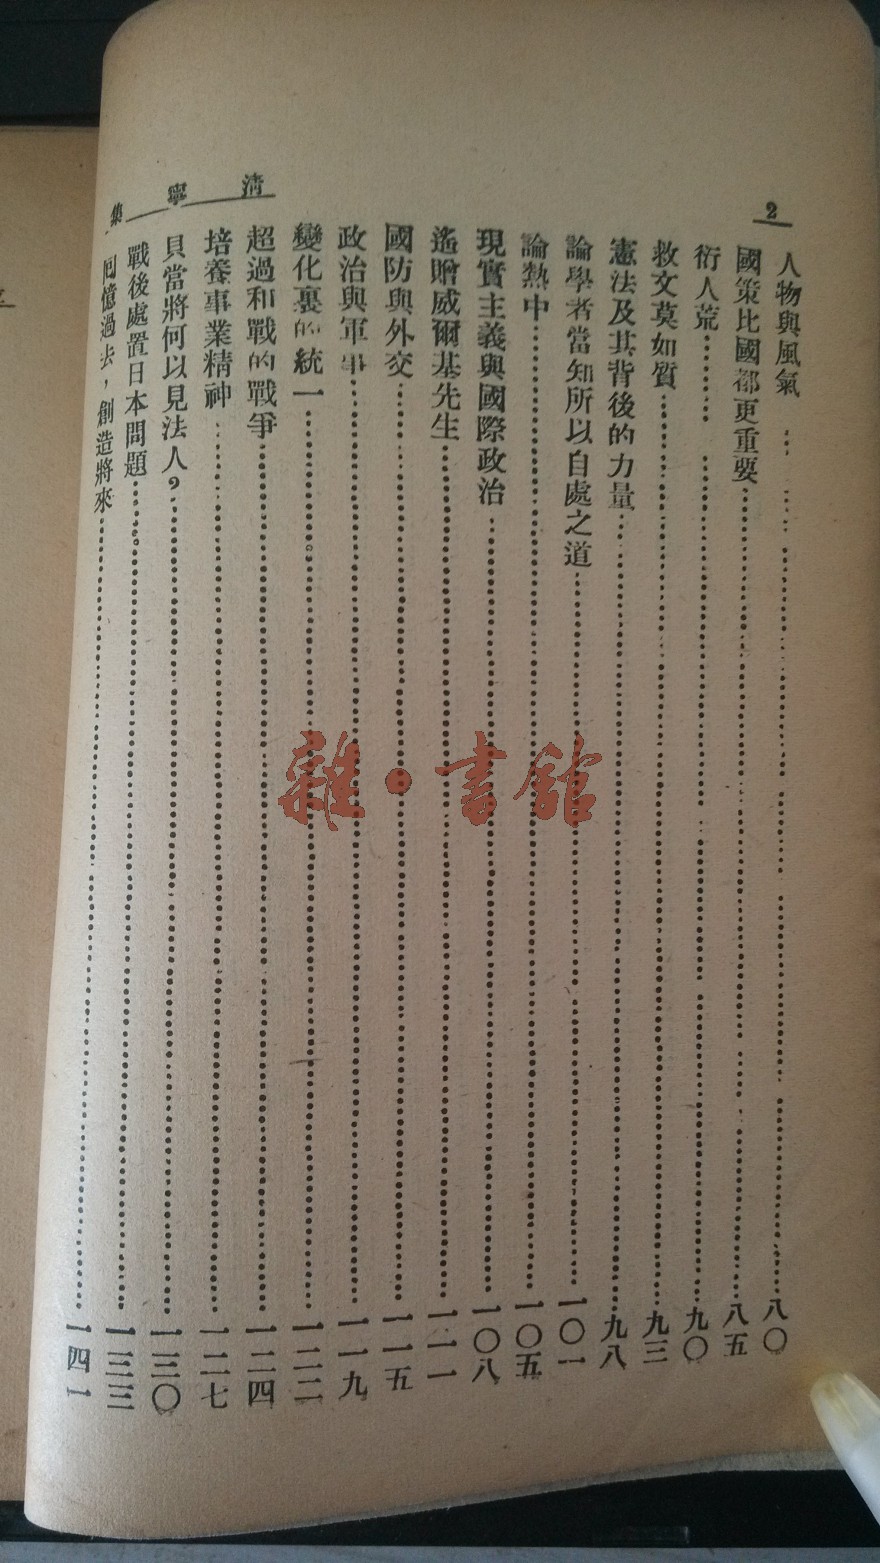 2
清寧集
人物與風氣……八〇
國策比國都更重要……八五
衍人荒……九〇
救文莫如質……九三
憲法及其背後的力量……九八
論學者當知所以自處之道……一〇一
論熱中……一〇五
現實主義與國際政治……一〇八
遙贈威爾基先生……一一一
國防與外交……一一五
政治與軍事……一一九
變化裏的統一……一二二
超過和戰的戰爭……一二四
培養事業精神……一二七
貝當將何以見法人？……一三〇
戰後處置日本問題……一三三
回憶過去，創造將來……一四一
雜·書館